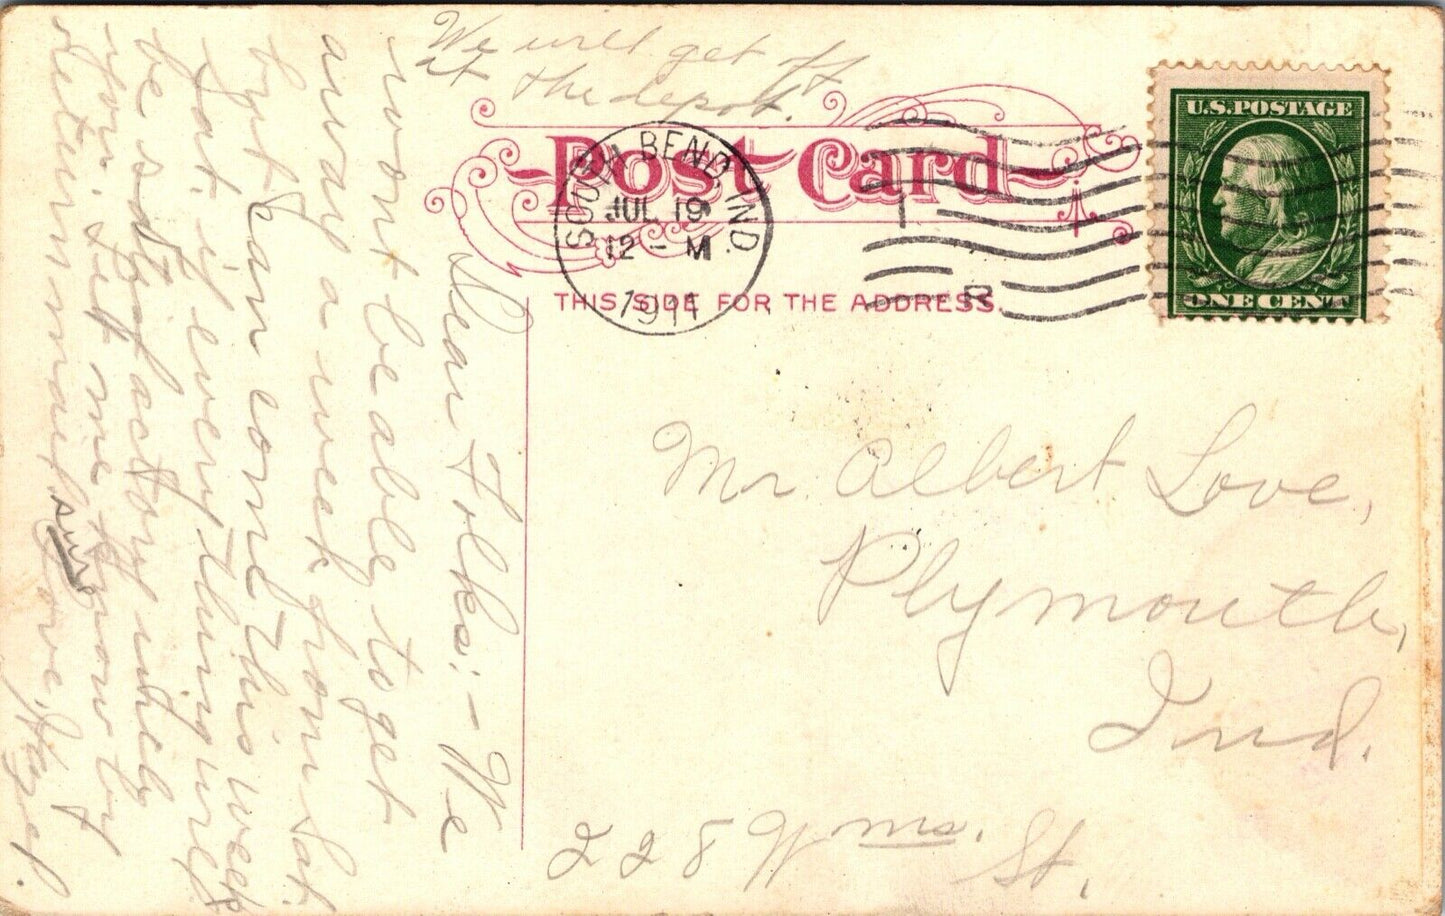 We will get off
at the depot.
Post Card
SOUTH BEND, IND.
JUL 19
12 - M
1911
1
R
U.S. POSTAGE
ONE CENT
THIS SIDE FOR THE ADDRESS.
Mr. Albert Love,
Plymouth,
Ind.
228 Wms. St.
Dear Folks: - We
wont be able to get
away a week from Sat.
but can come this week
Sat. if everything will
be satisfactory with
you. Let me know by
return mail sure Love, Hazel.